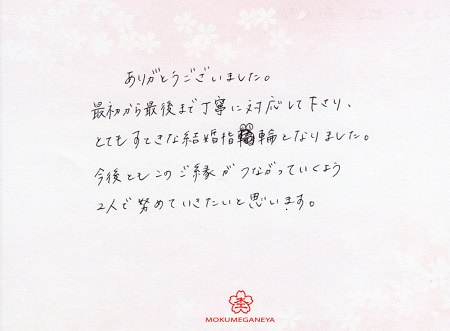 ありがとうございました。
最初から最後まで丁寧に対応して下さり、
とてもすてきな結婚指輪となりました。
今後ともこのご縁がつながっていくよう
2人で努めていきたいと思います。
MOKUMEGANEYA